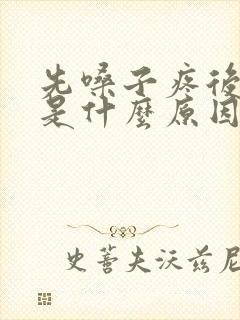 先嗓子疼後
是什麼原因
史蒂夫沃兹尼